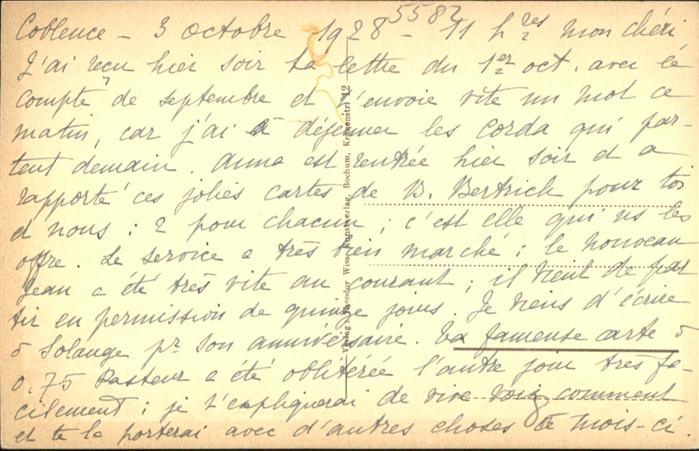 5582
Coblence - 3 octobre 1928 - 11 hres ½ mon chéri
J'ai reçu hier soir ta lettre du 1er oct. avec le
compte de septembre et t'envoie vite un mot ce
matin, car j'ai à déjeuner les Corda qui par-
tent demain. Anna est rentrée hier soir et a
rapporté ces jolies cartes de B. Bertrich pour toi
et nous : 2 pour chacun ; c'est elle qui ns les
offre. Le service a très bien marché ; le nouveau
Jean a été très vite au courant ; il vient de par
tir en permission de quinze jours. Je viens d'écrire
à Solange pr son anniversaire. Ta fameuse carte à
0.75 Pasteur a été oblitérée l'autre jour très fa-
cilement ; je t'expliquerai de vive voix comment
et te la porterai avec d'autres choses ce mois-ci.
Verlag Theodor Wisse, Kunstverlag, Bochum, 12